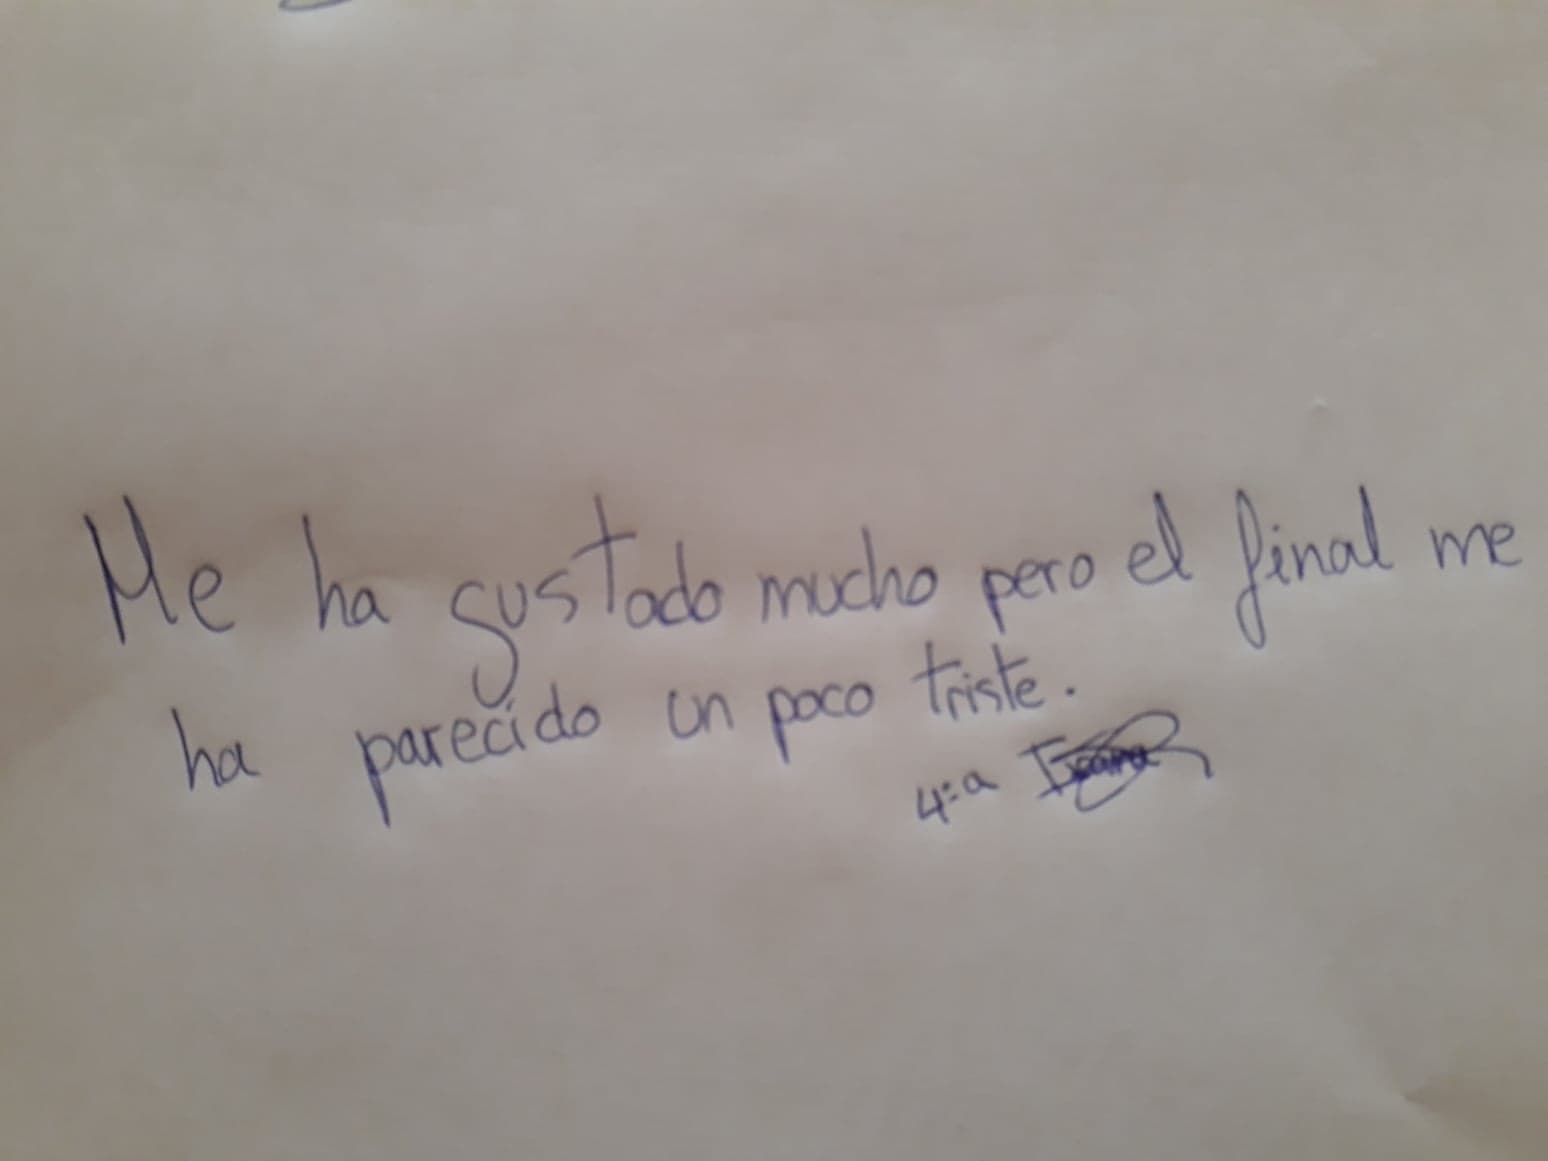 Me ha gustado mucho pero el final me
ha parecido un poco triste.
4:a